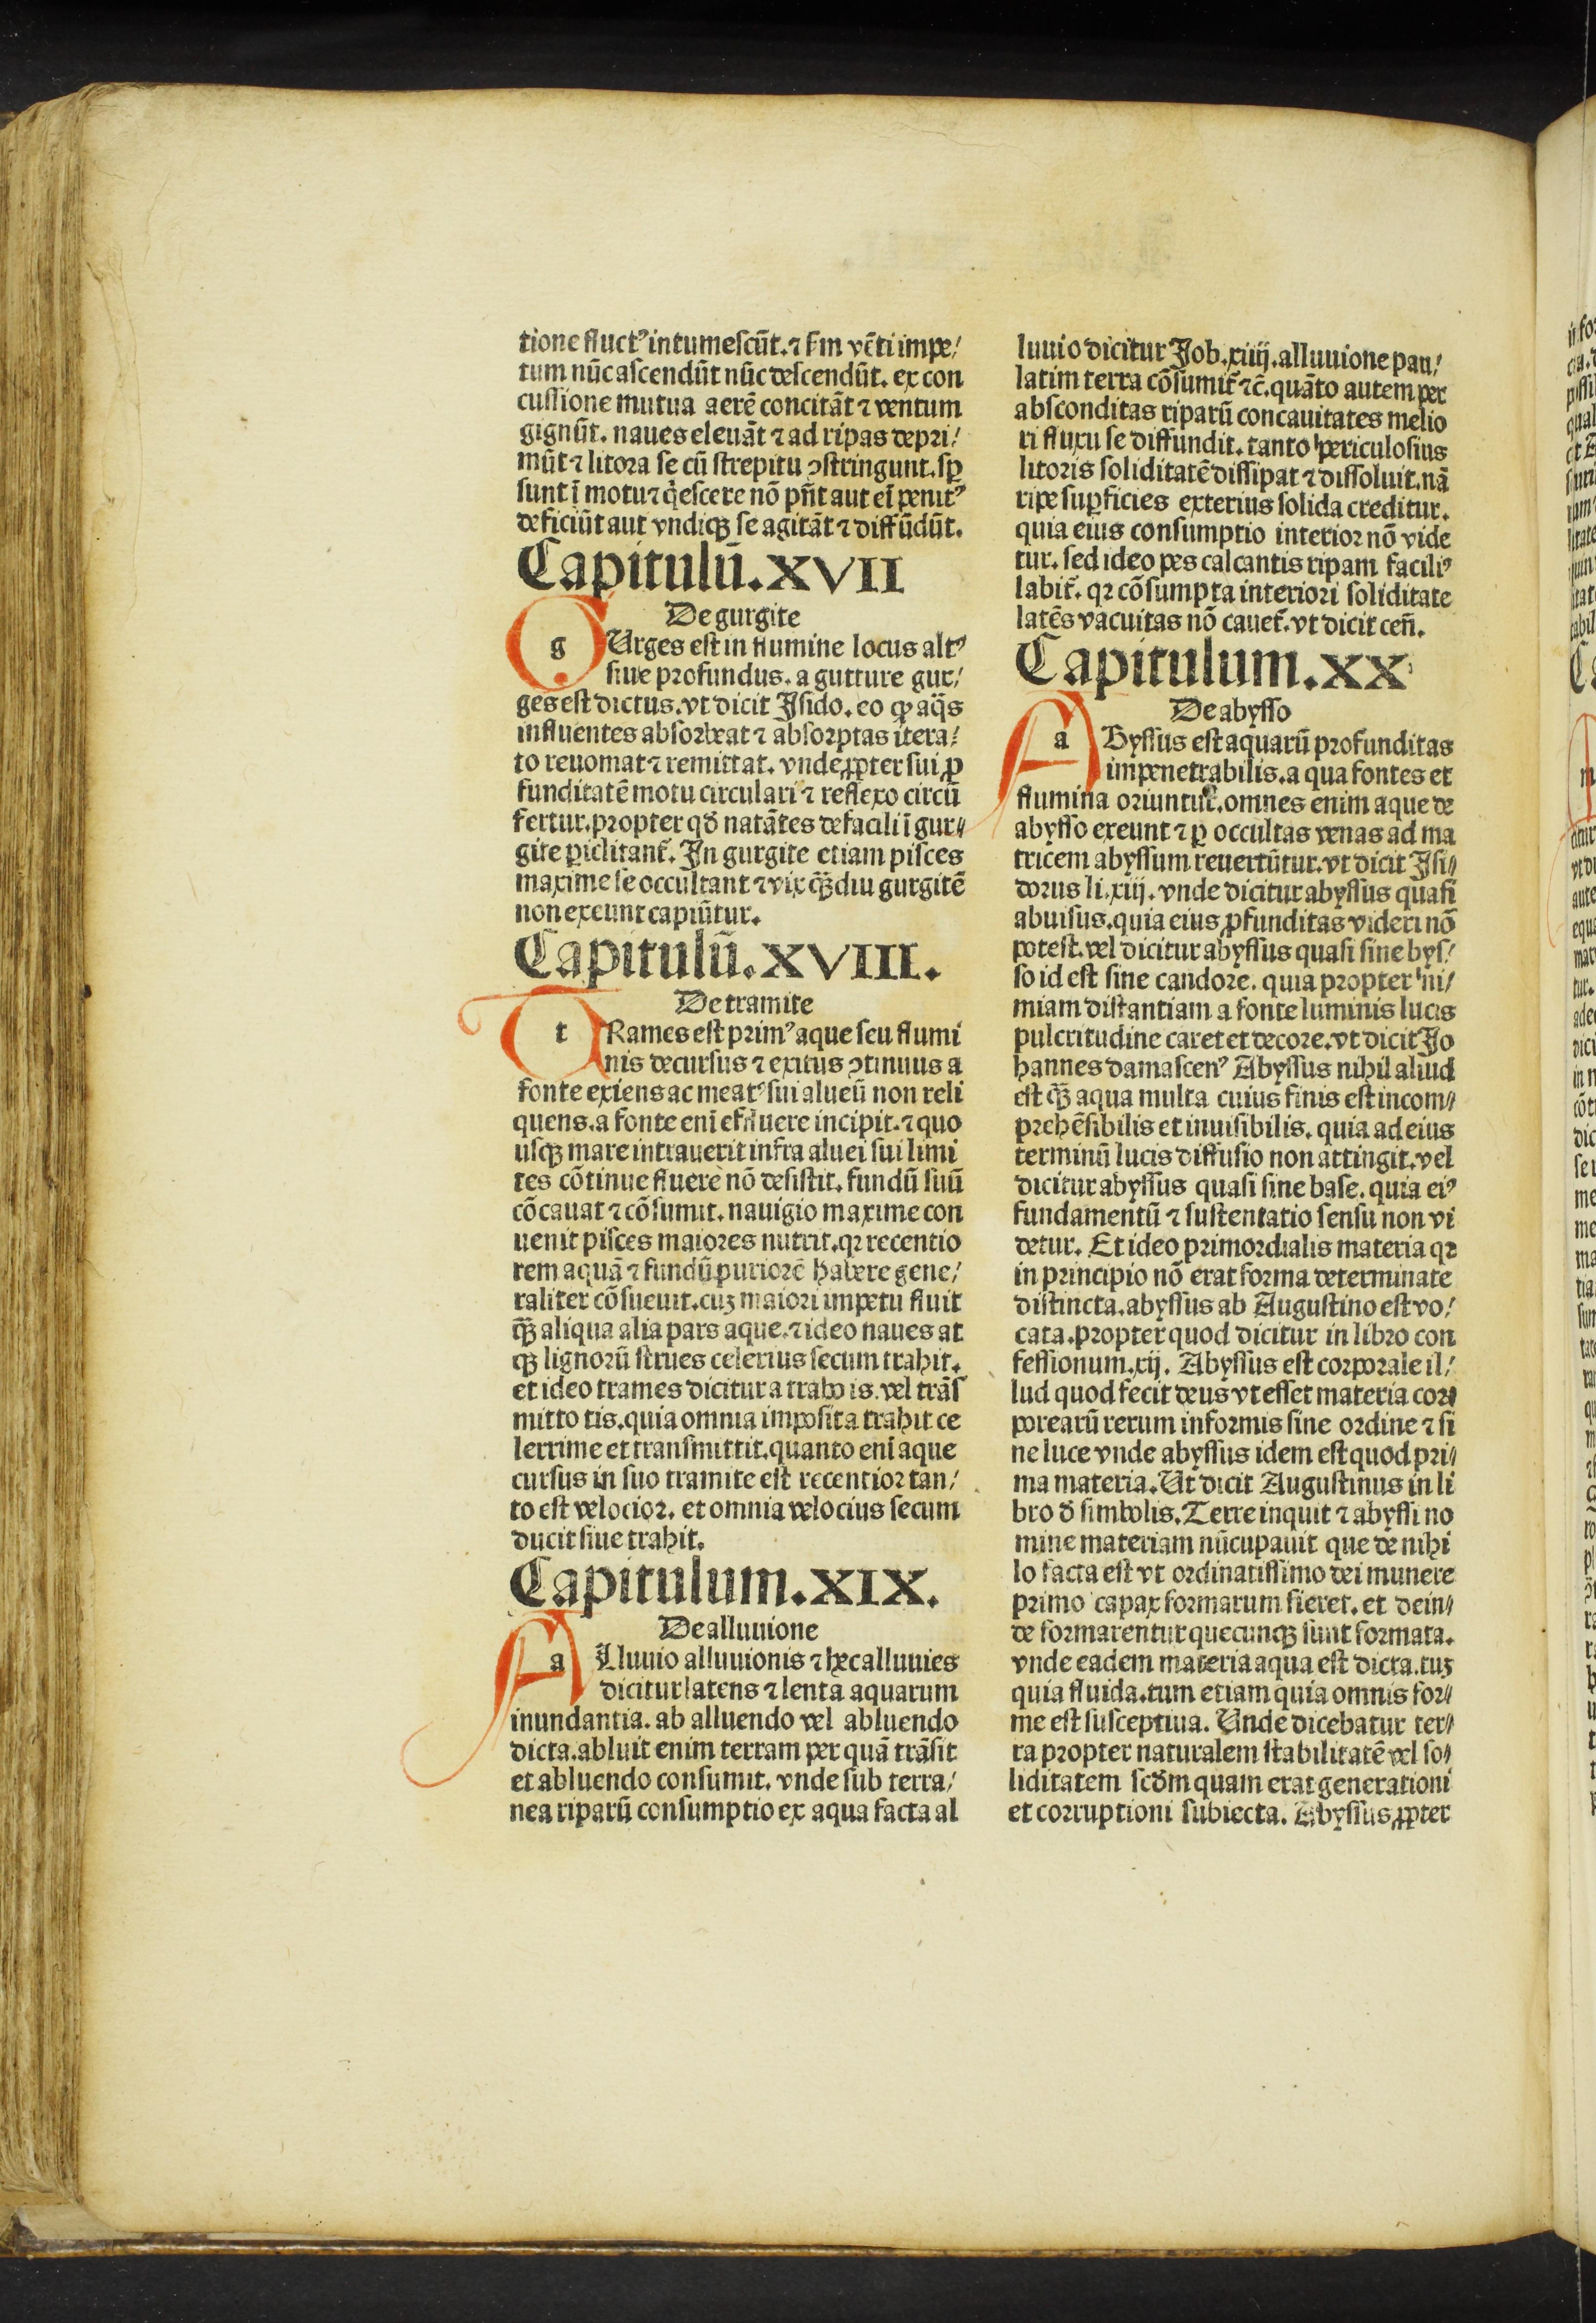 tione fluctꝰ intumescūt. ⁊ ẜm vēti impe/
tum nūc ascendūt nūc descendūt. ex con
cussione mutua aerē concitāt ⁊ ventum
gignūt. naues eleuāt ⁊ ad ripas depri/
mūt ⁊ litora se cū strepitu ↄstringunt. sꝑ
sunt ī motu ⁊ q̇escere nō pn̄t aut eī penitꝰ
deficiūt aut vndiqꝫ se agitāt ⁊ diffūdūt.
Capitulū. XVII
De gurgite
g Urges est in flumine locus altꝰ
siue profundus. a gutture gur/
ges est dictus. vt dicit Isido. eo ꝙ aq̄s
influentes absorbeat ⁊ absorptas itera/
to reuomat ⁊ remittat. vnde ꝓpter sui ꝓ
funditatē motu circulari ⁊ reflexo circū
fertur. propter qḋ natātes de facili ī gur//
gite ꝑiclitant̄. In gurgite etiam pisces
maxime se occultant ⁊ vix qꝫ̄diu gurgitē
non exeunt capiūtur.
Capitulū. XVIII.
De tramite
t Rames est primꝰ aque seu flumi
nis decursus ⁊ exitus ↄtinuus a
fonte exiens ac meatꝰ sui alueū non reli
quens. a fonte enī effluere incipit. ⁊ quo
usqꝫ mare intrauerit infra aluei sui limi
tes cōtinue fluere nō desistit. fundū suū
cōcauat ⁊ cōsumit. nauigio maxime con
uenit pisces maiores nutrit. qꝛ recentio
rem aquā ⁊ fundū puriorē habere gene/
raliter cōsueuit. cuꝫ maiori impetu fluit
qꝫ̄ aliqua alia pars aque. ⁊ ideo naues at
qꝫ lignorū strues celerius secum trahit.
et ideo trames dicitur a traho is. vel trās
mitto tis. quia omnia imposita trahit ce
lerrime et transmittit. quanto enī aque
cursus in suo tramite est recentior tan/
to est velocior. et omnia velocius secum
ducit siue trahit.
Capitulum. XIX.
De alluuione
a Lluuio alluuionis ⁊ hec alluuies
dicitur latens ⁊ lenta aquarum
inundantia. ab alluendo vel abluendo
dicta. abluit enim terram per quā trāsit
et abluendo consumit. vnde sub terra/
nea riparū consumptio ex aqua facta al
luuio dicitur Job. xiiij. alluuione pau/
latim terra cōsumit̄ ⁊c̄. quāto autem per
absconditas riparū concauitates melio
ri fluxu se diffundit. tanto periculosius
litoris soliditatē dissipat ⁊ dissoluit. nā
ripe suꝑficies exterius solida creditur.
quia eius consumptio interior nō vide
tur. sed ideo pes calcantis ripam faciliꝰ
labit̄. qꝛ cōsumpta interiori soliditate
latēs vacuitas nō cauet̄. vt dicit cen̄.
Capitulum. XX
De abysso
a Byssus est aquarū profunditas
impenetrabilis. a qua fontes et
flumina oriuntur. omnes enim aque de
abysso exeunt ⁊ ꝑ occultas venas ad ma
tricem abyssum reuertūtur. vt dicit Isi//
dorus li. xiij. vnde dicitur abyssus quasi
abuisus. quia eius ꝓfunditas videri nō
potest. vel dicitur abyssus quasi sine bys/
so id est sine candore. quia propter ni/
miam distantiam a fonte luminis lucis
pulcritudine caret et decore. vt dicit Jo
hannes damascenꝰ Abyssus nihil aliud
est qꝫ̄ aqua multa cuius finis est incom//
prehēsibilis et inuisibilis. quia ad eius
terminū lucis diffusio non attingit. vel
dicitur abyssus quasi sine base. quia eiꝰ
fundamentū ⁊ sustentatio sensu non vi
detur. Et ideo primordialis materia qꝛ
in principio nō erat forma determinate
distincta. abyssus ab Augustino est vo/
cata. propter quod dicitur in libro con
fessionum. xij. Abyssus est corporale il/
lud quod fecit deus vt esset materia cor//
porearū rerum informis sine ordine ⁊ si
ne luce vnde abyssus idem est quod pri//
ma materia. Ut dicit Augustinus in li
bro ḋ simbolis. Terre inquit ⁊ abyssi no
mine materiam nūcupauit que de nihi
lo facta est vt ordinatissimo dei munere
primo capax formarum fieret. et dein//
de formarentur quecunqꝫ sunt formata.
vnde eadem materia aqua est dicta. tuꝫ
quia fluida. tum etiam quia omnis for//
me est susceptiua. Unde dicebatur ter//
ra propter naturalem stabilitatē vel so//
liditatem scḋm quam erat generationi
et corruptioni subiecta. Abyssus ꝓpter